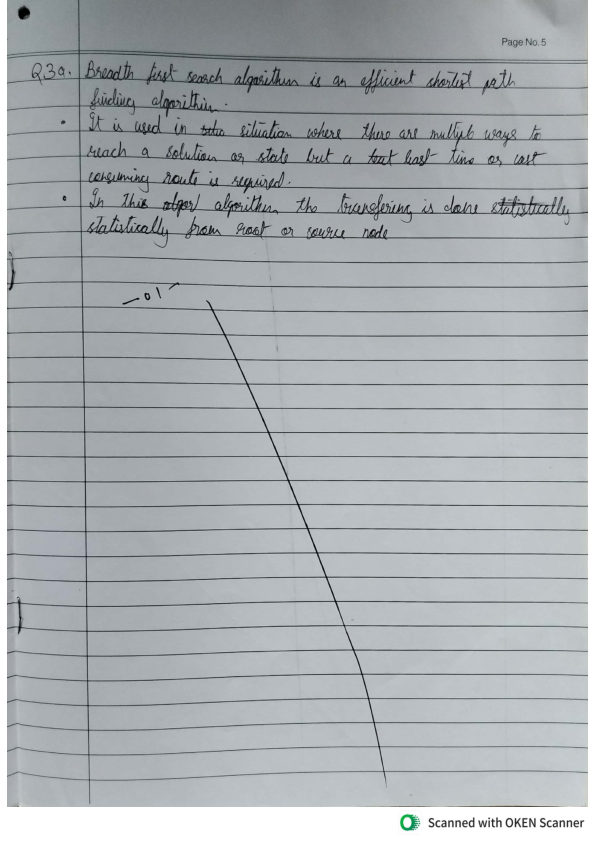 Page No. 5
Q3a. Breadth first search algorithm is an efficient shortest path
finding algorithm.
• It is used in situation where there are multiple ways to
reach a solution or state but a least time or cost
consuming route is required.
• In this algorithm the transfering is done statistically
statistically from root or source node
Scanned with OKEN Scanner